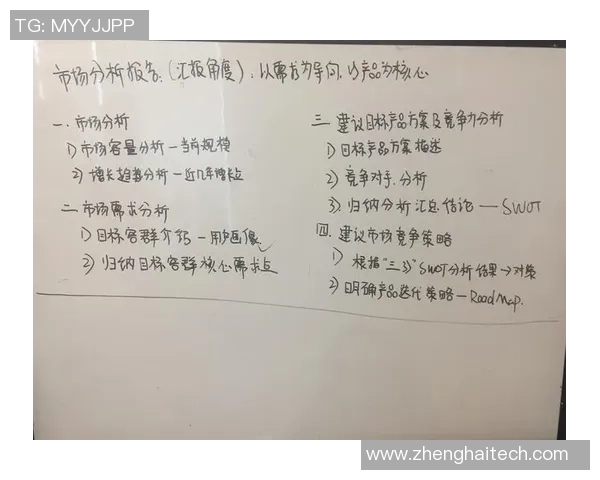 TG: MYYJJPP
市场分析报告:(汇报角度):以需求为导向,以产品为核心
一.市场分析
1) 市场容量分析—当前规模
2) 增长趋势分析—近几年增长点
二.市场需求分析
1) 目标客群介绍—用户画像
2) 归纳目标客群核心需求点
三.建议目标产品方案及竞争力分析
1) 目标产品方案描述
2) 竞争对手分析
3) 归纳分析汇总结论——SWOT
四.建议市场竞争策略
1) 根据"三.3)"SWOT分析结果→对策
2) 明确产品迭代策略—RoadMap.
www.zhenghaitech.com